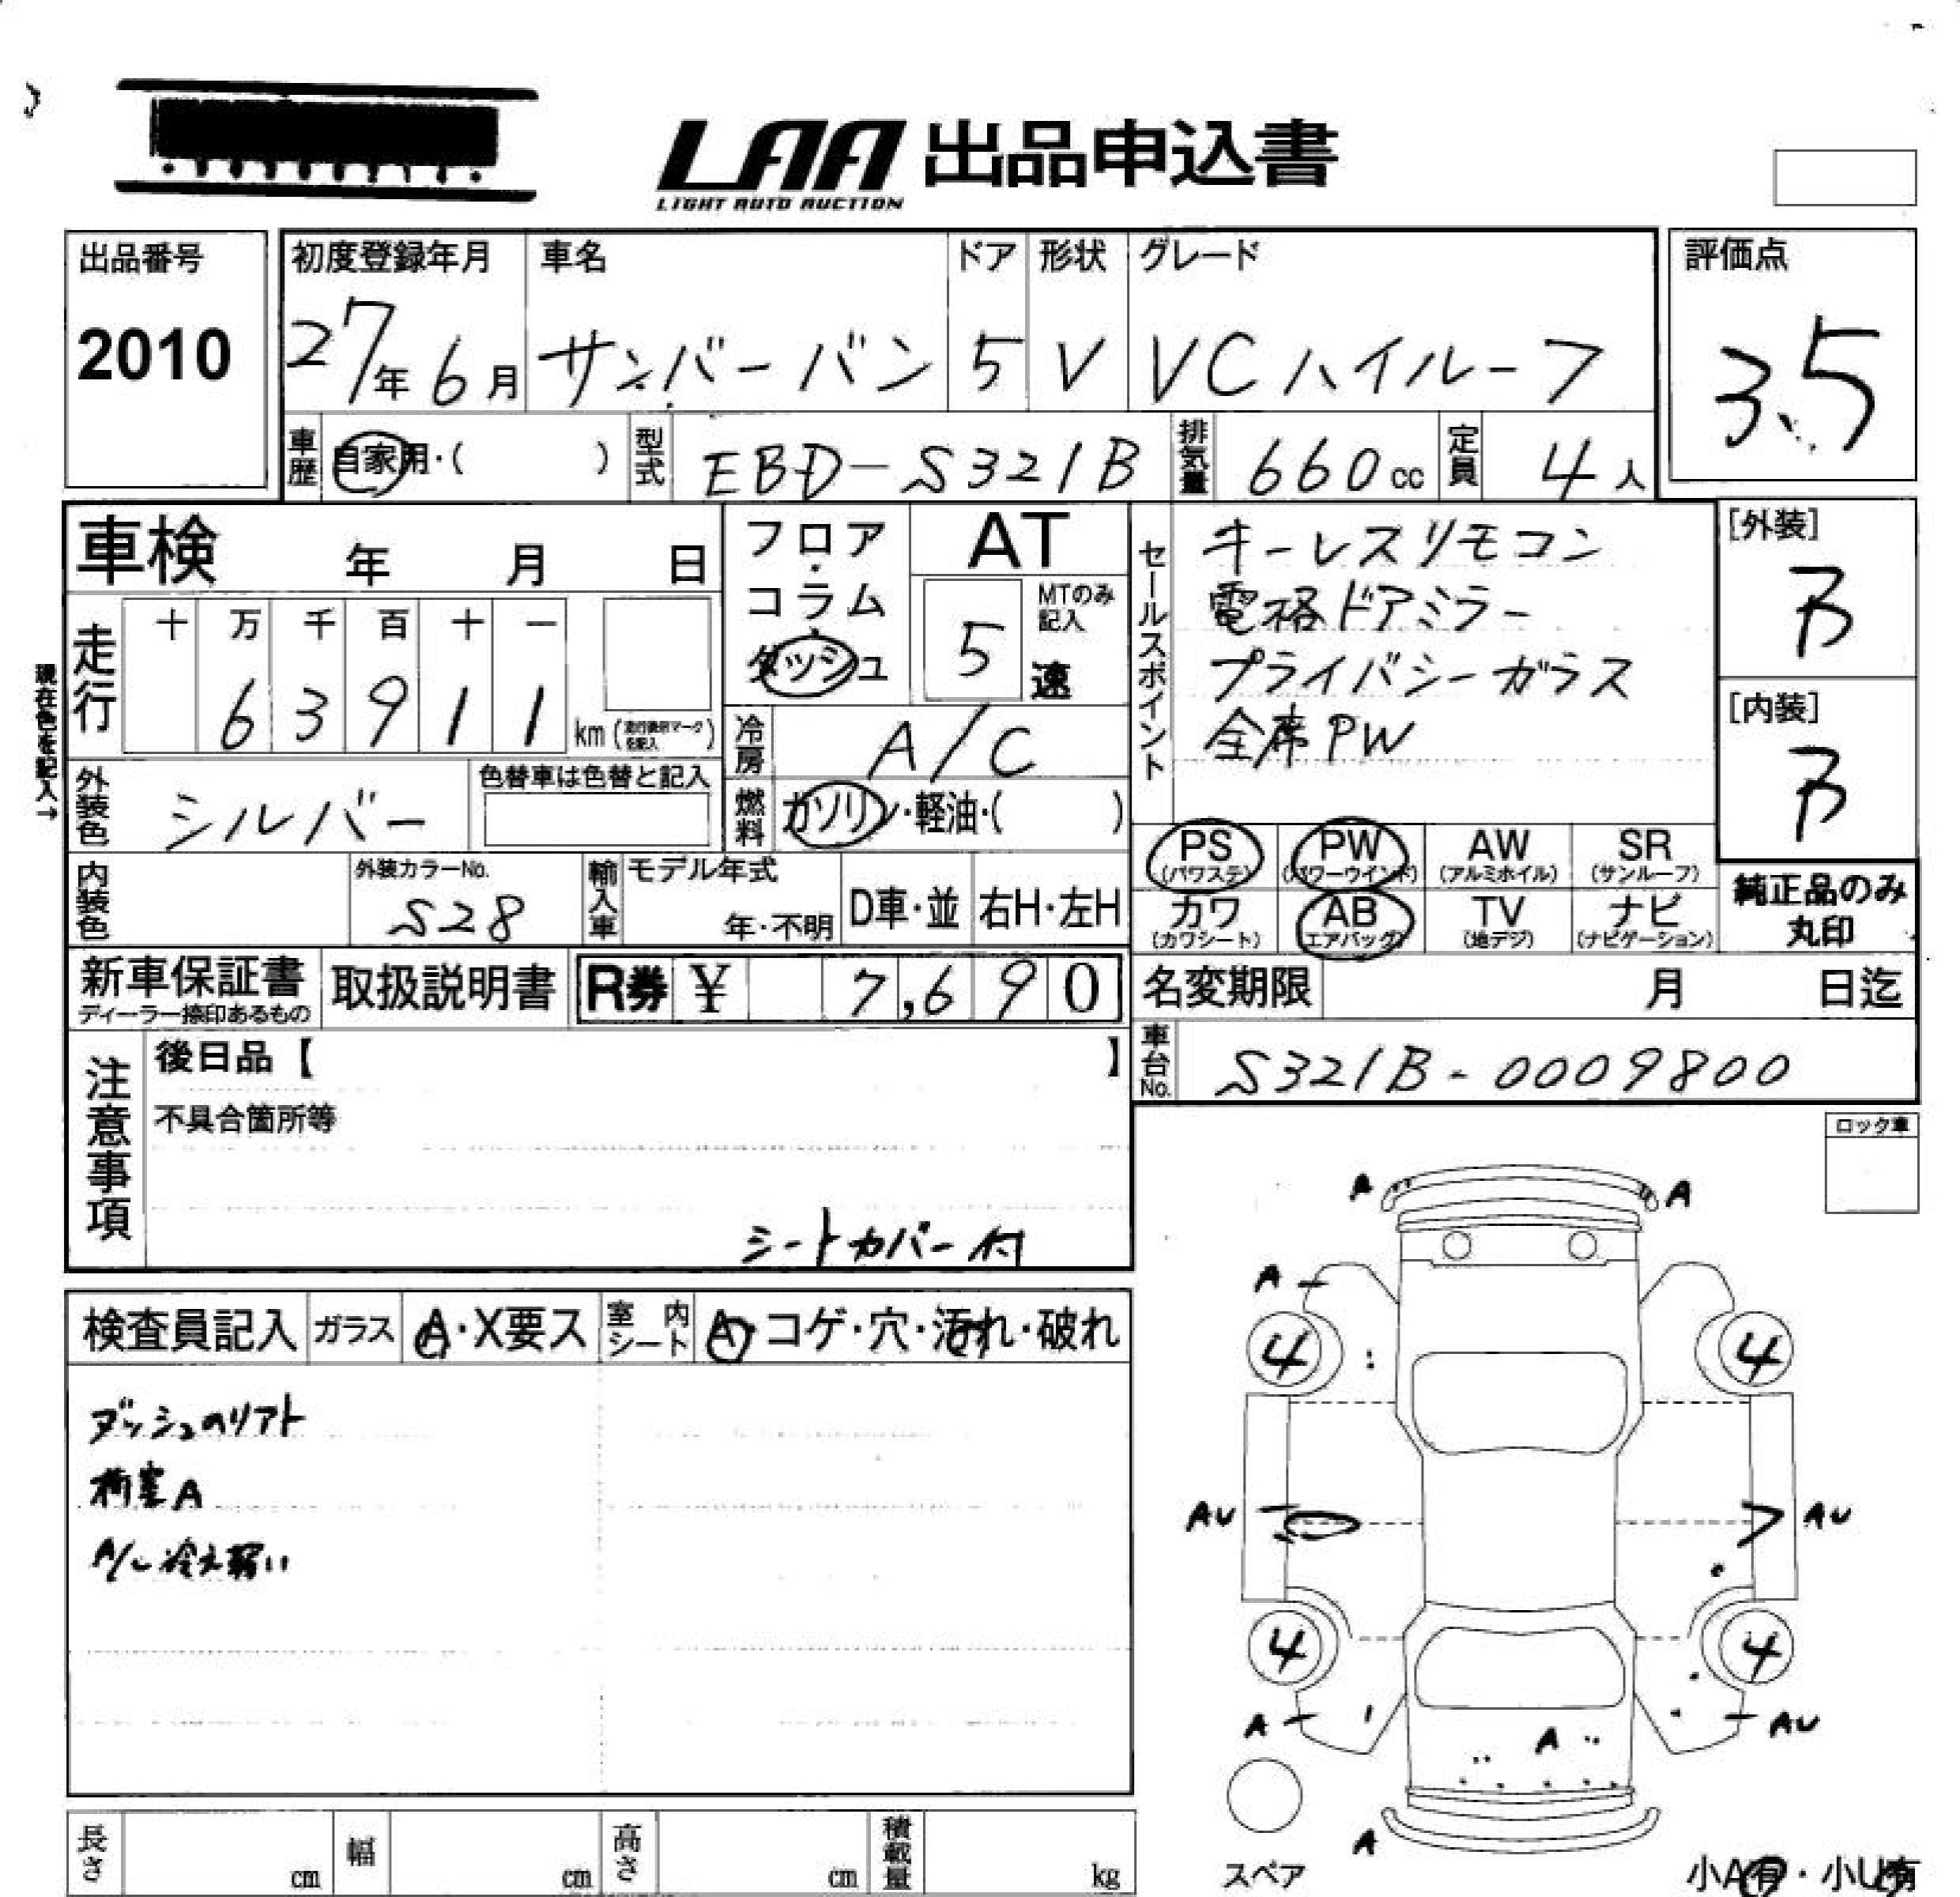 LAA 出品申込書
LIGHT AUTO AUCTION
出品番号
2010
初度登録年月
27年6月
車名
サンバーバン
ドア
5
形状
V
グレード
VCハイルーフ
評価点
3.5
車歴
自家用・( )
型式
EBD-S321B
排気量
660cc
定員
4人
車検 年 月 日
走行
十 万 千 百 十 一
6 3 9 1 1 km
現在色を記入→
フロア・コラム・ダッシュ
AT
MTのみ記入
5速
冷房
A/C
燃料
ガソリン・軽油・( )
セールスポイント
キーレスリモコン
電格ドアミラー
プライバシーガラス
全席PW
[外装]
B
[内装]
B
外装色
シルバー
色替車は色替と記入
内装色
外装カラーNo.
S28
輸入車
モデル年式
年・不明
D車・並
右H・左H
PS (パワステ)
PW (パワーウインド)
AW (アルミホイル)
SR (サンルーフ)
カワ (カワシート)
AB (エアバッグ)
TV (地デジ)
ナビ (ナビゲーション)
純正品のみ丸印
新車保証書
ディーラー捺印あるもの
取扱説明書
R券 ¥ 7,690
名変期限 月 日迄
車台No.
S321B-0009800
注意事項
後日品【 】
不具合箇所等
シートカバー付
ロック車
検査員記入
ガラス
A・X要ス
室内シート
A・コゲ・穴・汚れ・破れ
ダッシュのリアト
荷室A
A/C冷え弱い
A A
A
4 4
AU AU
4 4
A AU
A
A
スペア
小A有・小U有
長さ cm
幅 cm
高さ cm
積載量 kg